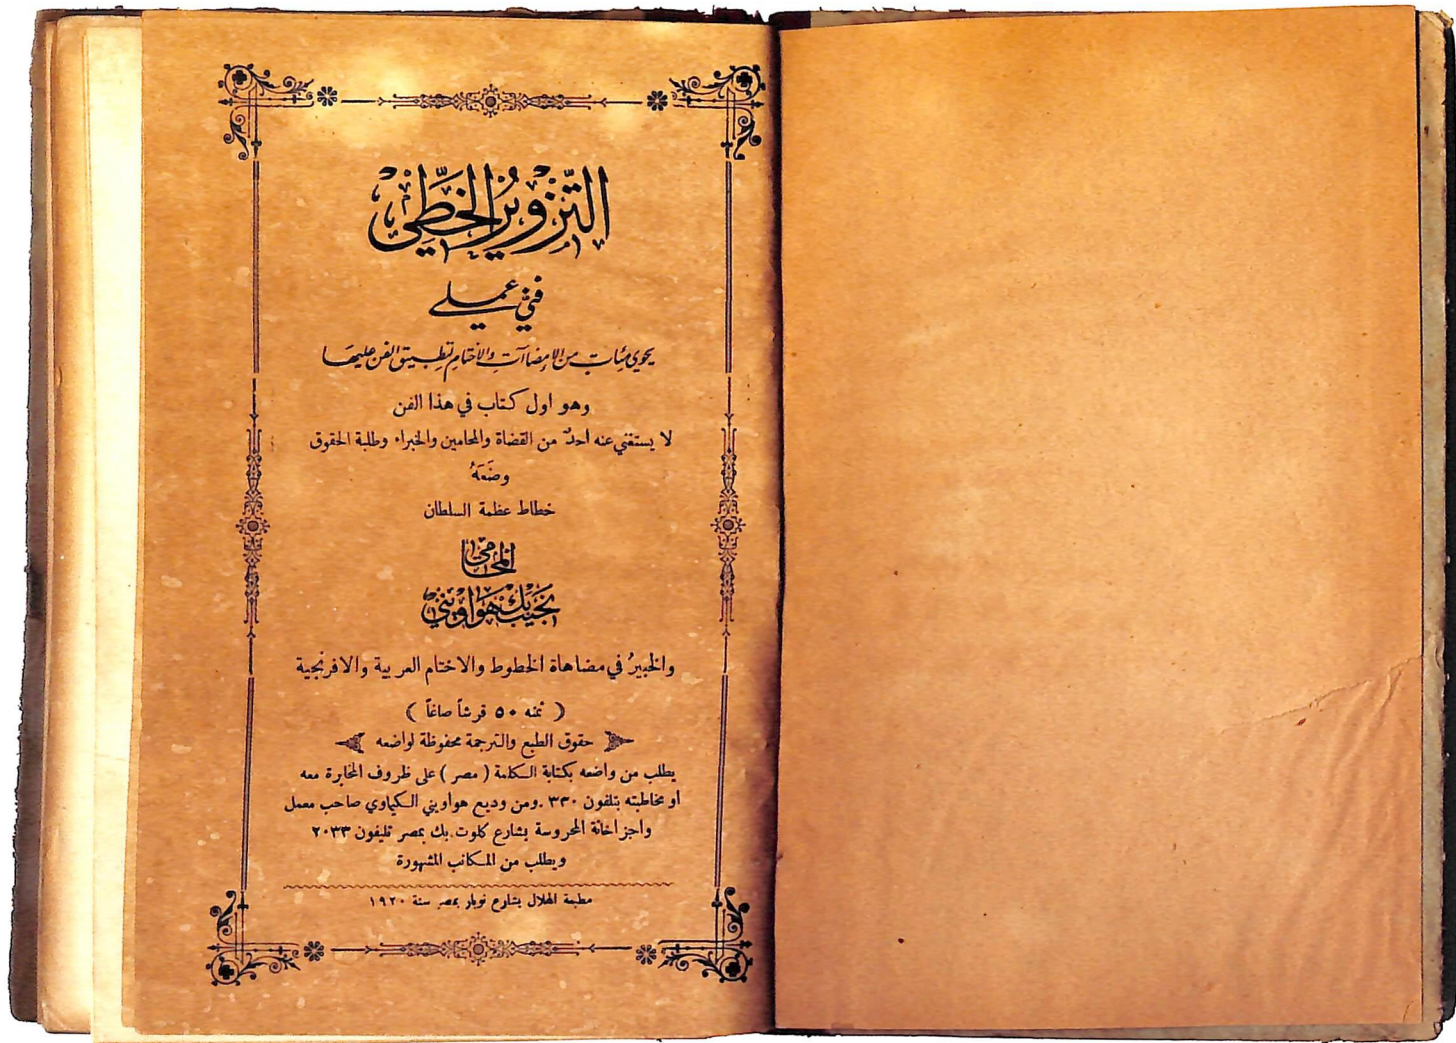 التّزويرُ الخطّي
فني عملي
يحوي مئات من الإمضاآت والأختام تطبيق الفن عليها
وهو اول كتاب في هذا الفن
لا يستغني عنه احدٌ من القضاة والمحامين والخبراء وطلبة الحقوق
وضَعَهُ
خطاط عظمة السلطان
المحامي
نجيب بك هواويني
والخبيرُ في مضاهاة الخطوط والاختام العربية والافرنجية
( ثمنه ٥٠ قرشاً صاغاً )
حقوق الطبع والترجمة محفوظة لواضعه
يطلب من واضعه بكتابة الكلمة ( مصر ) على ظروف المخابرة معه
او مخاطبته بتلفون ٣٣٠ . ومن وديع هواويني الكيماوي صاحب معمل
واجزاخانة المحروسة بشارع كلوت بك بمصر تليفون ٢٠٣٣
ويطلب من المكاتب المشهورة
مطبعة الهلال بشارع نوبار بمصر سنة ١٩٢٠